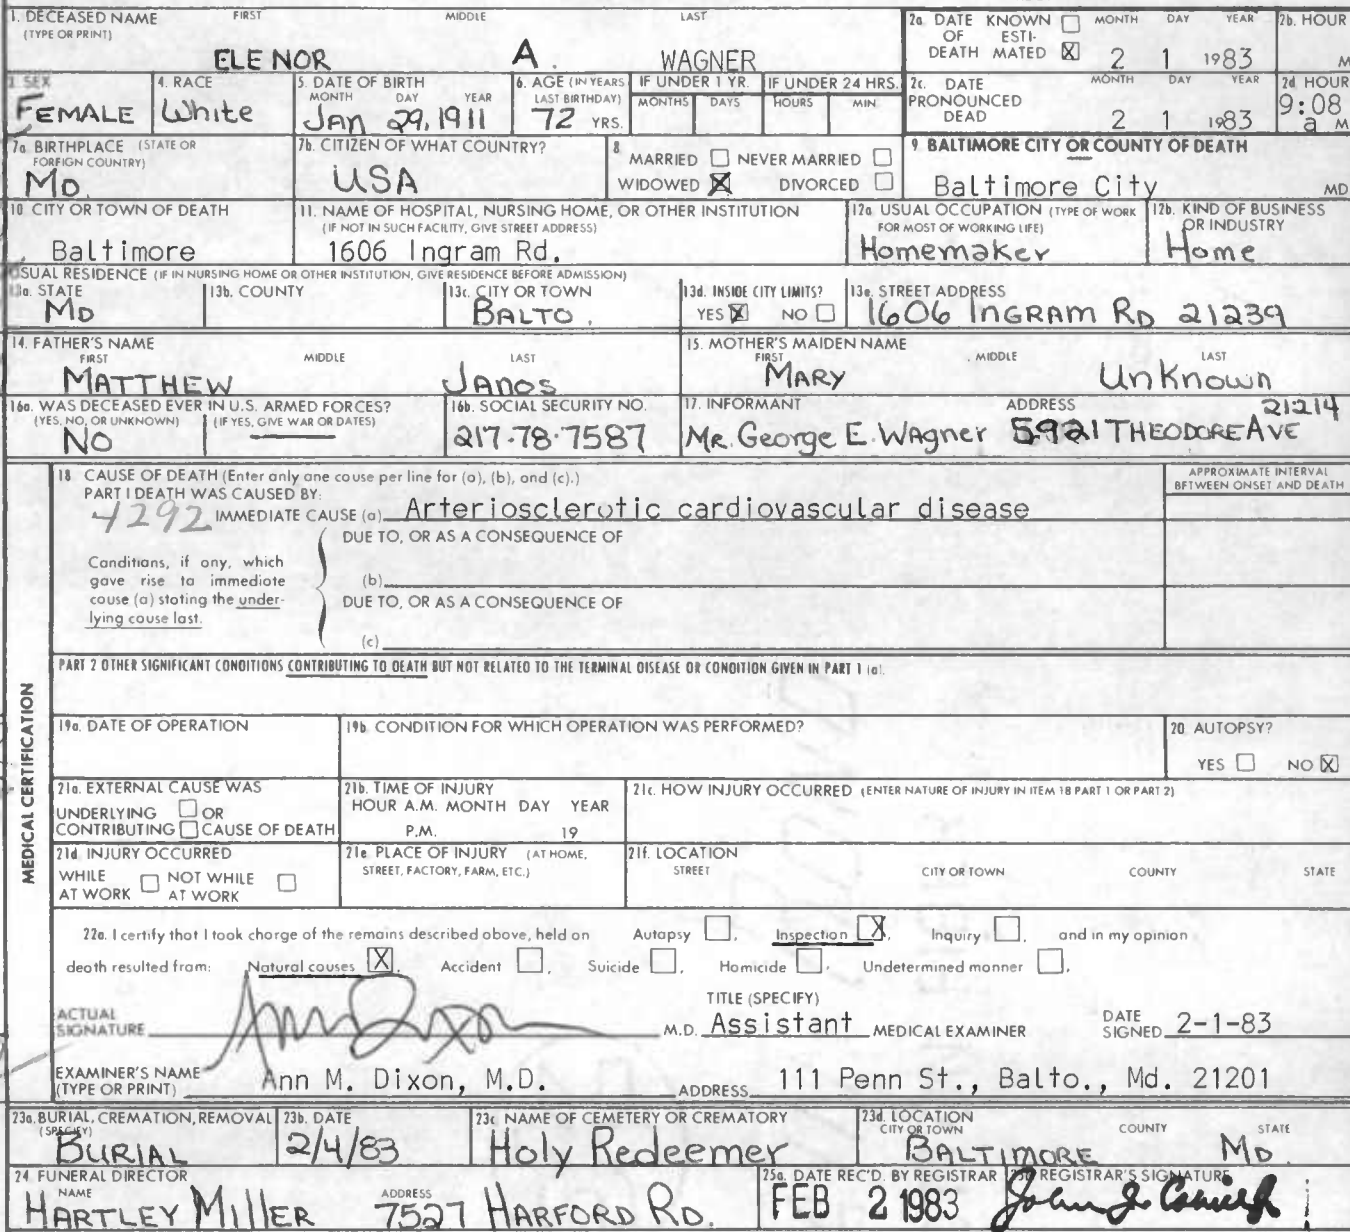 1. DECEASED NAME FIRST MIDDLE LAST
(TYPE OR PRINT)
ELENOR A. WAGNER
2a. DATE KNOWN ☐ MONTH DAY YEAR
OF ESTI-
DEATH MATED ☒ 2 1 1983
2b. HOUR
M
3. SEX
FEMALE
4. RACE
White
5. DATE OF BIRTH
MONTH DAY YEAR
JAN 29, 1911
6. AGE (IN YEARS
LAST BIRTHDAY)
72 YRS.
IF UNDER 1 YR.
MONTHS DAYS
IF UNDER 24 HRS.
HOURS MIN
2c. DATE MONTH DAY YEAR
PRONOUNCED
DEAD 2 1 1983
2d HOUR
9:08
a M
7a. BIRTHPLACE (STATE OR
FOREIGN COUNTRY)
MD.
7b. CITIZEN OF WHAT COUNTRY?
USA
8
MARRIED ☐ NEVER MARRIED ☐
WIDOWED ☒ DIVORCED ☐
9. BALTIMORE CITY OR COUNTY OF DEATH
Baltimore City MD
10 CITY OR TOWN OF DEATH
Baltimore
11. NAME OF HOSPITAL, NURSING HOME, OR OTHER INSTITUTION
(IF NOT IN SUCH FACILITY, GIVE STREET ADDRESS)
1606 Ingram Rd.
12a USUAL OCCUPATION (TYPE OF WORK
FOR MOST OF WORKING LIFE)
Homemaker
12b. KIND OF BUSINESS
OR INDUSTRY
Home
USUAL RESIDENCE (IF IN NURSING HOME OR OTHER INSTITUTION, GIVE RESIDENCE BEFORE ADMISSION)
13a. STATE
MD
13b. COUNTY
13c. CITY OR TOWN
BALTO.
13d. INSIDE CITY LIMITS?
YES ☒ NO ☐
13e. STREET ADDRESS
1606 INGRAM RD 21239
14. FATHER'S NAME
FIRST MIDDLE LAST
MATTHEW JANOS
15. MOTHER'S MAIDEN NAME
FIRST MIDDLE LAST
MARY UnKnown
16a. WAS DECEASED EVER IN U.S. ARMED FORCES?
(YES, NO, OR UNKNOWN) (IF YES, GIVE WAR OR DATES)
NO
16b. SOCIAL SECURITY NO.
217-78-7587
17. INFORMANT ADDRESS 21214
MR. George E. WAgner 5921 THEODORE AVE
MEDICAL CERTIFICATION
18 CAUSE OF DEATH (Enter only one cause per line for (a), (b), and (c).)
PART I DEATH WAS CAUSED BY:
4292 IMMEDIATE CAUSE (a) Arteriosclerotic cardiovascular disease
APPROXIMATE INTERVAL
BETWEEN ONSET AND DEATH
DUE TO, OR AS A CONSEQUENCE OF
Conditions, if any, which
gave rise to immediate
cause (a) stating the under-
lying cause last.
(b)
DUE TO, OR AS A CONSEQUENCE OF
(c)
PART 2 OTHER SIGNIFICANT CONDITIONS CONTRIBUTING TO DEATH BUT NOT RELATED TO THE TERMINAL DISEASE OR CONDITION GIVEN IN PART 1 (a).
19a. DATE OF OPERATION
19b. CONDITION FOR WHICH OPERATION WAS PERFORMED?
20 AUTOPSY?
YES ☐ NO ☒
21a. EXTERNAL CAUSE WAS
UNDERLYING ☐ OR
CONTRIBUTING ☐ CAUSE OF DEATH
21b. TIME OF INJURY
HOUR A.M. MONTH DAY YEAR
P.M. 19
21c. HOW INJURY OCCURRED (ENTER NATURE OF INJURY IN ITEM 18 PART 1 OR PART 2)
21d INJURY OCCURRED
WHILE ☐ NOT WHILE ☐
AT WORK AT WORK
21e PLACE OF INJURY (AT HOME,
STREET, FACTORY, FARM, ETC.)
21f. LOCATION
STREET CITY OR TOWN COUNTY STATE
22a. I certify that I took charge of the remains described above, held on Autopsy ☐, Inspection ☒, Inquiry ☐, and in my opinion
death resulted from: Natural causes ☒, Accident ☐, Suicide ☐, Homicide ☐, Undetermined manner ☐.
ACTUAL
SIGNATURE Ann Dixon M.D.
TITLE (SPECIFY)
Assistant MEDICAL EXAMINER
DATE
SIGNED 2-1-83
EXAMINER'S NAME
(TYPE OR PRINT) Ann M. Dixon, M.D. ADDRESS 111 Penn St., Balto., Md. 21201
23a. BURIAL, CREMATION, REMOVAL
(SPECIFY)
BURIAL
23b. DATE
2/4/83
23c NAME OF CEMETERY OR CREMATORY
Holy Redeemer
23d. LOCATION
CITY OR TOWN COUNTY STATE
BALTIMORE MD
24 FUNERAL DIRECTOR
NAME ADDRESS
HARTLEY MILLER 7527 HARFORD RD.
25a. DATE REC'D. BY REGISTRAR
FEB 2 1983
REGISTRAR'S SIGNATURE
John J.